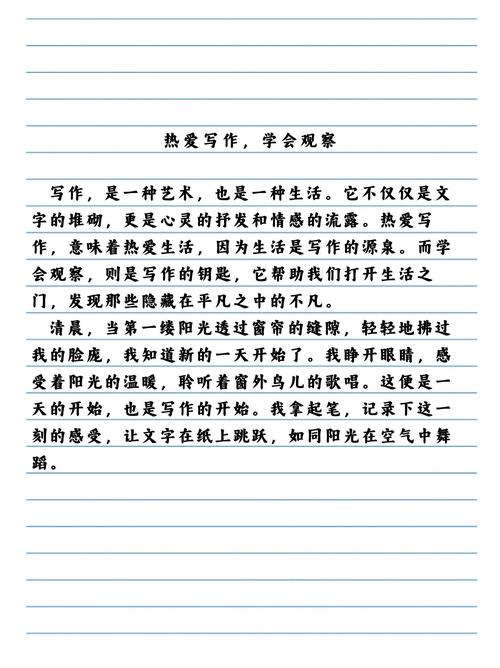 热爱写作，学会观察
写作，是一种艺术，也是一种生活。它不仅仅是文
字的堆砌，更是心灵的抒发和情感的流露。热爱写
作，意味着热爱生活，因为生活是写作的源泉。而学
会观察，则是写作的钥匙，它帮助我们打开生活之
门，发现那些隐藏在平凡之中的不凡。
清晨，当第一缕阳光透过窗帘的缝隙，轻轻地拂过
我的脸庞，我知道新的一天开始了。我睁开眼睛，感
受着阳光的温暖，聆听着窗外鸟儿的歌唱。这便是一
天的开始，也是写作的开始。我拿起笔，记录下这一
刻的感受，让文字在纸上跳跃，如同阳光在空气中舞
蹈。